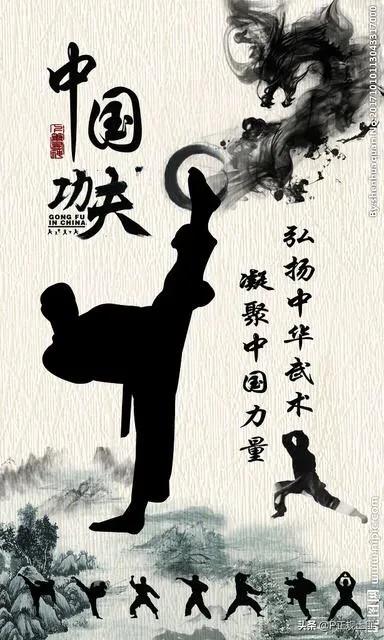 中国
功夫
GONG FU
IN CHINA
弘扬中华武术
凝聚中国力量
By:shenhuaquan No.20171010113043317000
www.nipic.com